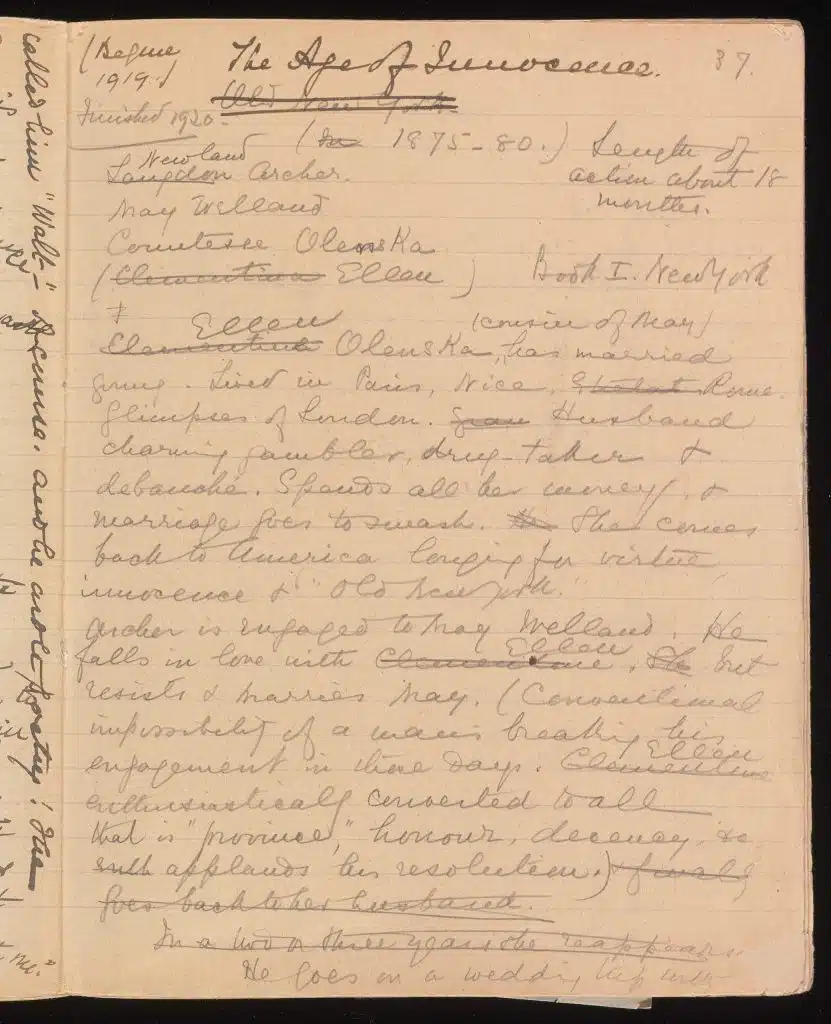 called him "Walt-" of course. And he wrote poetry! The
(Begun
1919.)
The Age of Innocence.
37.
Old New York.
Finished 1920.
(In 1875-80.)
Length of
action about 18
months.
Newland
Langdon Archer.
May Welland
Comtesse Olenska
(Clementina Ellen)
Book I. New York
Ellen
(cousin of May)
Clementina Olenska, has married
young. Lived in Paris, Nice, Rome.
Glimpses of London. Husband
charming gambler, drug-taker &
debauché. Spends all her money, &
marriage goes to smash. She comes
back to America longing for virtue
innocence & "Old New York."
Archer is engaged to May Welland. He
Ellen
falls in love with Clementine, She but
resists & marries May. (Conventional
impossibility of a man's breaking his
Ellen
engagement in those days. Clementine
enthusiastically converted to all
that is "province," honour, decency, &c
applauds his resolution.) & finally
goes back to her husband.
In a two or three years she reappears.
He goes on a wedding trip with
me."